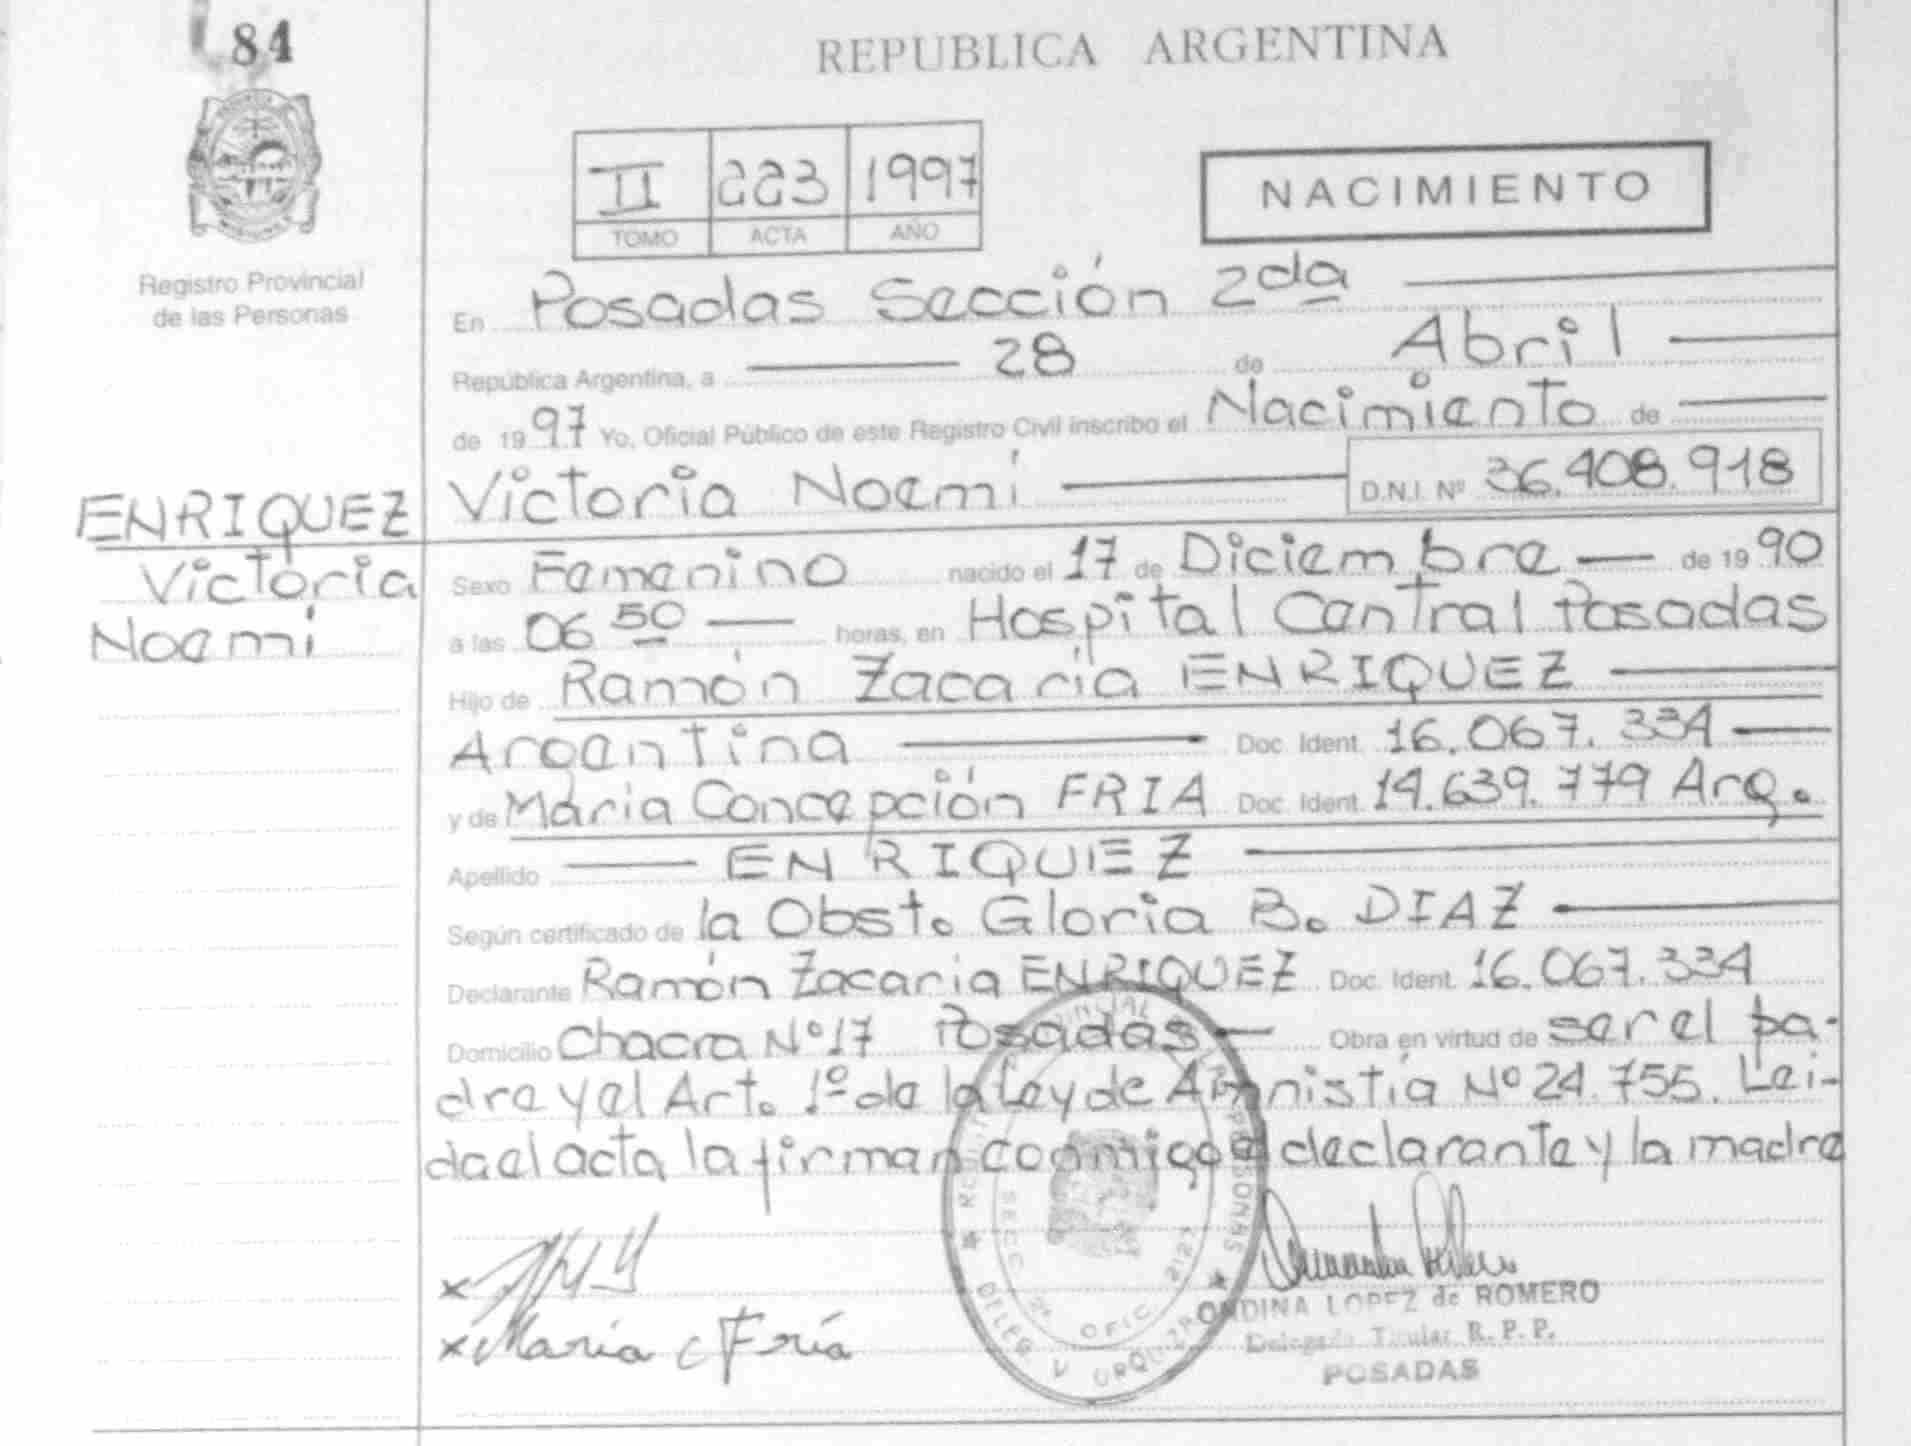 84
REPUBLICA ARGENTINA
II 223 1997
TOMO ACTA AÑO
NACIMIENTO
Registro Provincial
de las Personas
En Posadas Sección 2da
República Argentina, a 28 de Abril
de 1997 Yo, Oficial Público de este Registro Civil inscribo el Nacimiento de
Victoria Noemí D.N.I. Nº 36.408.918
ENRIQUEZ
Victoria
Noemí
Sexo Femenino nacido el 17 de Diciembre de 1990
a las 06 50 horas, en Hospital Central Posadas
Hijo de Ramón Zacaria ENRIQUEZ
Argentina Doc. Ident. 16.067.334
y de Maria Concepción FRIA Doc. Ident. 14.639.779 Arg.
Apellido ENRIQUEZ
Según certificado de la Obst. Gloria B. DIAZ
Declarante Ramón Zacaria ENRIQUEZ Doc. Ident. 16.067.334
Domicilio Chacra Nº17 Posadas Obra en virtud de ser el pa-
dre y el Art. 1º de la Ley de Amnistía Nº 24.755. Lei-
da el acta la firman conmigo el declarante y la madre
x
x Maria C Fría
SECC 2ª OFIC 2127
DELEG V URQUIZA
ONDINA LOPEZ de ROMERO
Delegada Titular R. P. P.
POSADAS